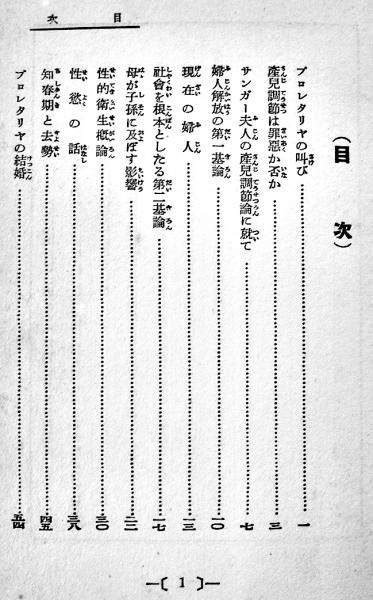 目次
(目次)
プロレタリヤの叫び……一
產兒調節は罪惡か否か……三
サンガー夫人の產兒調節論に就て……七
婦人解放の第一基論……一〇
現在の婦人……一三
社會を根本としたる第二基論……一七
母が子孫に及ぼす影響……二二
性的衞生槪論……三〇
性慾の話……三八
知春期と去勢……四五
プロレタリヤの結婚……五四
—〔 1 〕—